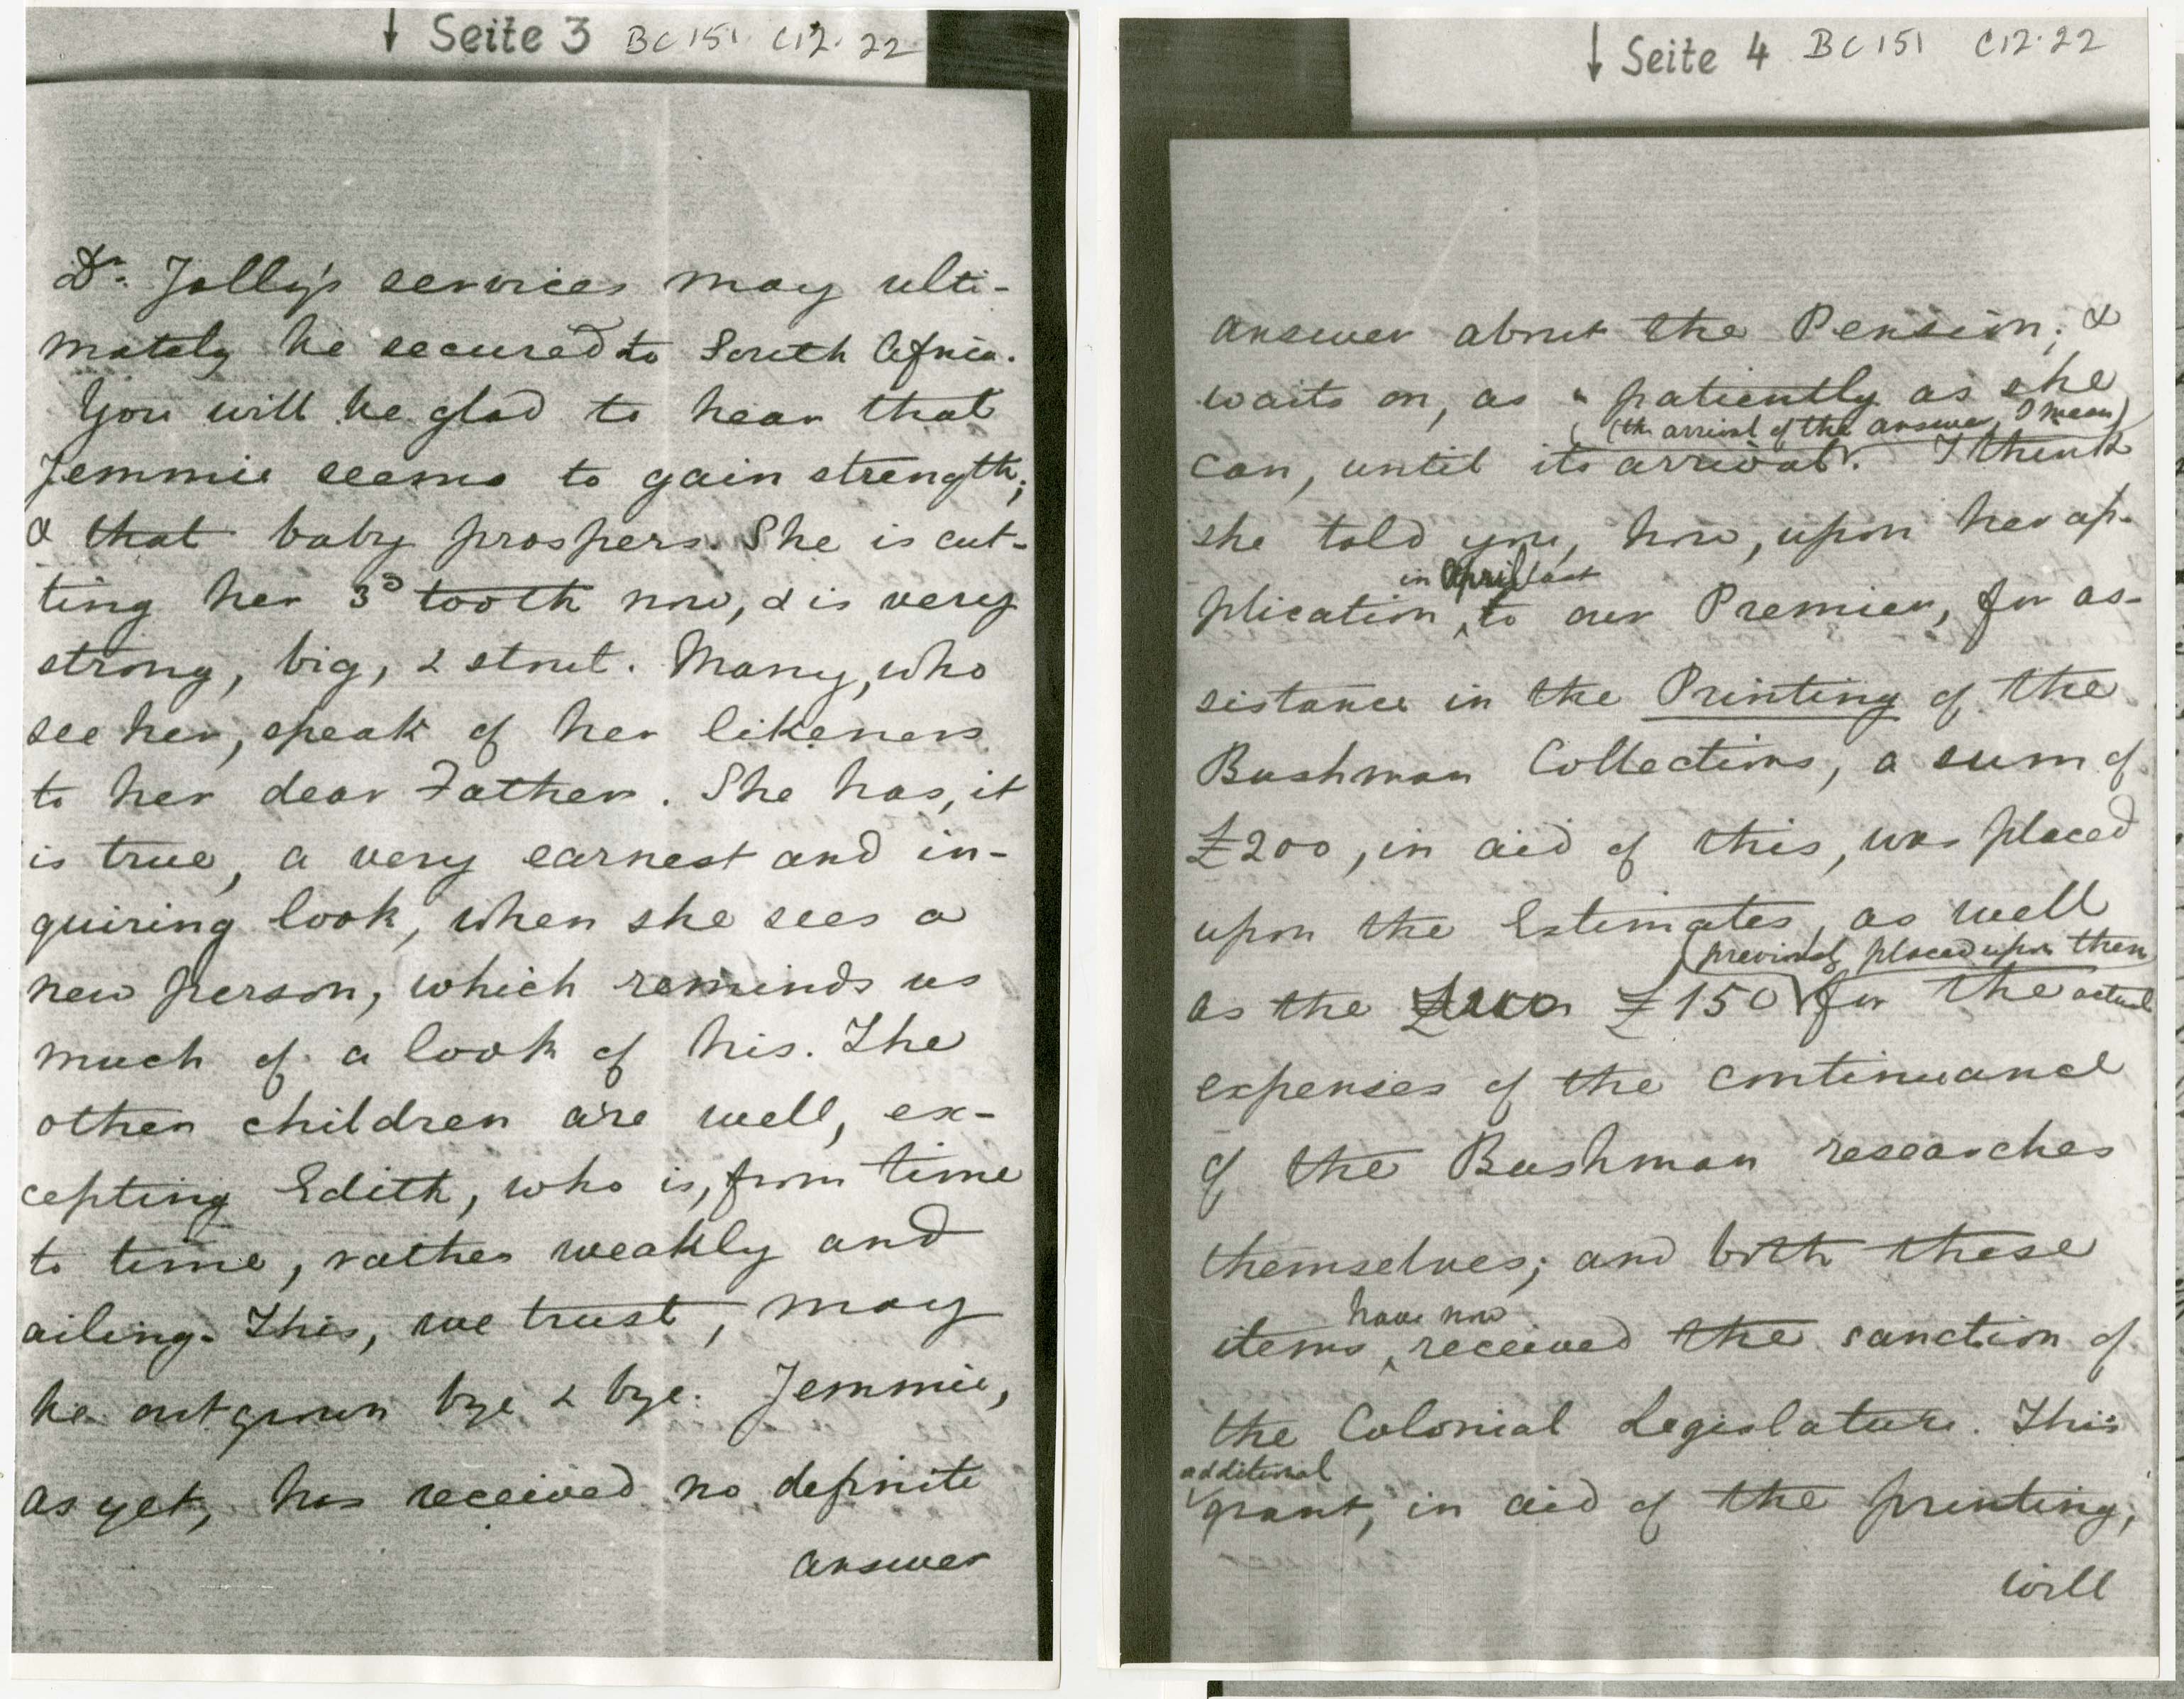 ↓ Seite 3 BC 151 C12.22
Dr. Jolly's services may ulti-
mately be secured to South Africa.
You will be glad to hear that
Jemmie seems to gain strength;
& that baby prospers. She is cut-
ting her 3d tooth now, & is very
strong, big, & stout. Many, who
see her, speak of her likeness
to her dear Father. She has, it
is true, a very earnest and in-
quiring look, when she sees a
new person, which reminds us
much of a look of his. The
other children are well, ex-
cepting Edith, who is, from time
to time, rather weakly and
ailing. This, we trust, may
be outgrown bye & bye. Jemmie,
as yet, has received no definite
answer
↓ Seite 4 BC 151 C12.22
answer about the Pension; &
waits on, as patiently as she
(the arrival of the answer, I mean)
can, until its arrival. I think
she told you, how, upon her ap-
in April last
plication, to our Premier, for as-
sistance in the Printing of the
Bushman Collections, a sum of
£200, in aid of this, was placed
upon the Estimates, as well
(previously placed upon them
as the £150 for the actual
expenses of the continuance
of the Bushman researches
themselves; and both these
have now
items received the sanction of
the Colonial Legislature. This
additional
grant, in aid of the printing,
will